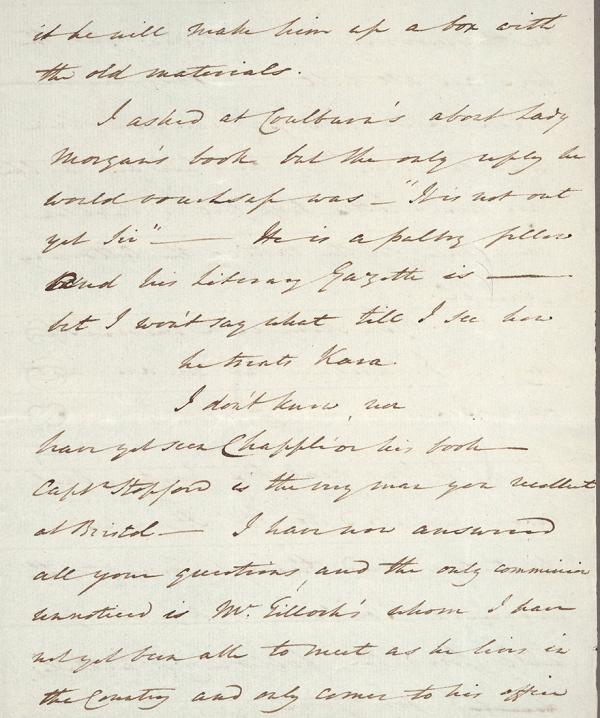 it he will make him up a box with
the old materials.
I asked at Coulburn's about Lady
Morgan's book but the only reply he
would vouchsafe was — "It is not out
yet Sir" — He is a paltry fellow
and his Literary Gazette is —
but I won't say what till I see how
he treats Kara
I don't know, nor
have yet seen Chapple or his book —
Captn Stopford is the very man you recollect
at Bristol — I have now answered
all your questions, and the only commission
unnoticed is Mr. Tilloch's whom I have
not yet been able to meet as he lives in
the Country and only comes to his office